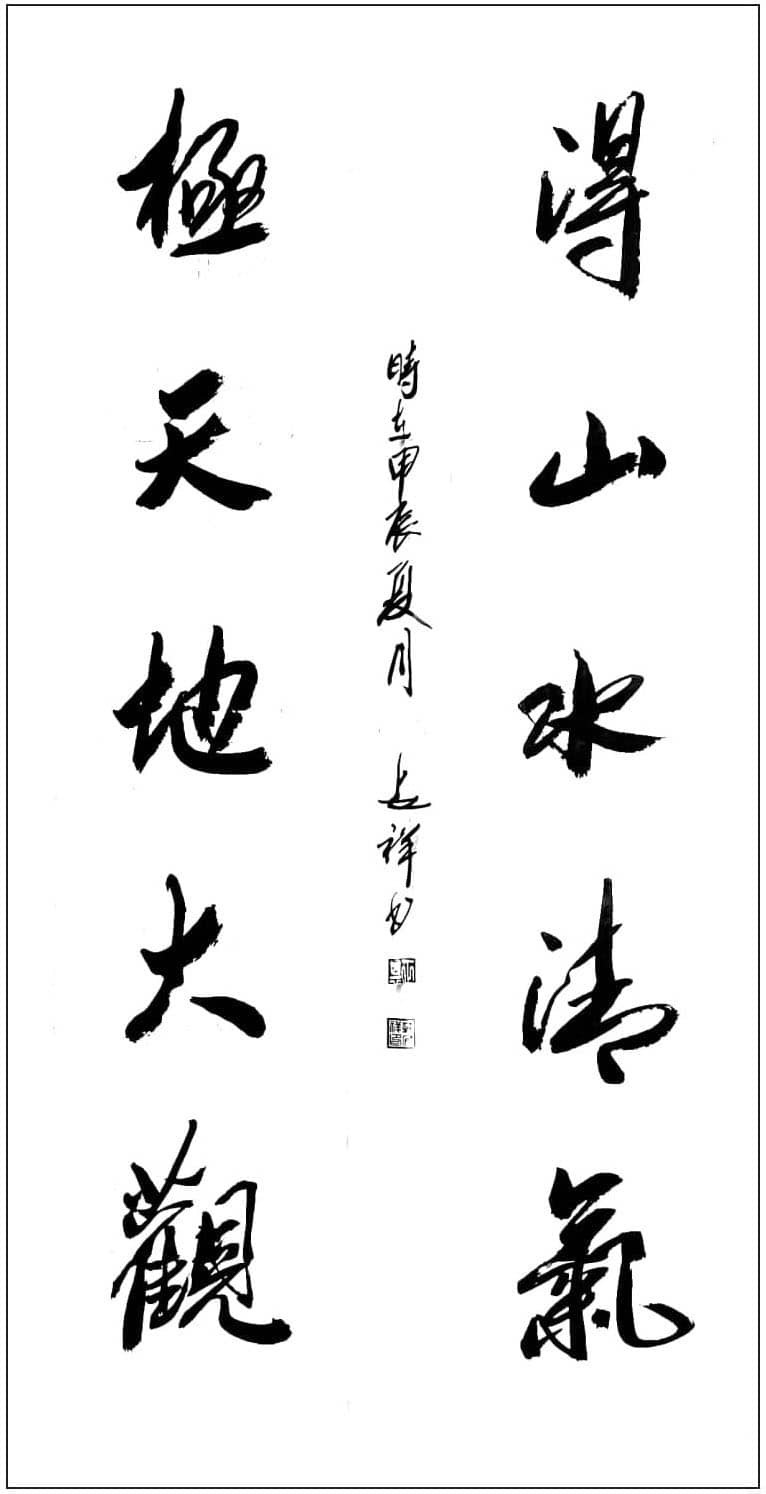 得山水清氣
極天地大觀
時在甲辰夏月
長祥書